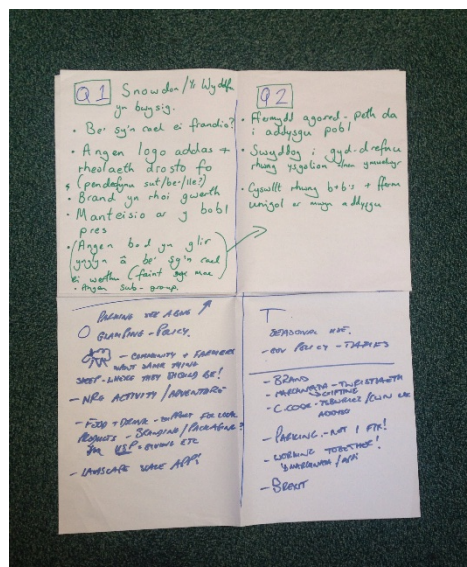 Q1 Snowdon/Yr Wyddfa
yn bwysig.
• Be' sy'n cael ei frandio?
• Angen logo addas +
rheolaeth drosto fo
(penderfynu sut/be'/lle?)
• Brand yn rhoi gwerth
• Manteisio ar y bobl
pres
• (Angen bod yn glir
ynglyn â be' sy'n cael
ei werthu (faint
• Angen sub-group.
Q2
• Ffermydd agored - peth da
i addysgu pobl
• Swyddog i gyd-drefnu
rhwng ysgolion
• Cyswllt rhwng b+b's + fferm
unigol ar mwyn addysgu
PARKING
GLAMPING - POLICY.
- COMMUNITY + FARMERS
WANT SAME THING
SHEEP - WHERE THEY SHOULD BE!
- NRG ACTIVITY/ADVENTURE
- FOOD + DRINK - SUPPORT FOR LOCAL
PRODUCTS - BRANDING/PACKAGING?
USP + GIVING ETC
- LANDSCAPE SCALE APP?
T
SEASONAL
- GOV POLICY - 
- BRAND
- MARCHNATA - TWRISTIAETH
- C.CODE -
- PARKING - NOT 1 FIX!
- WORKING TOGETHER!
- BREXIT